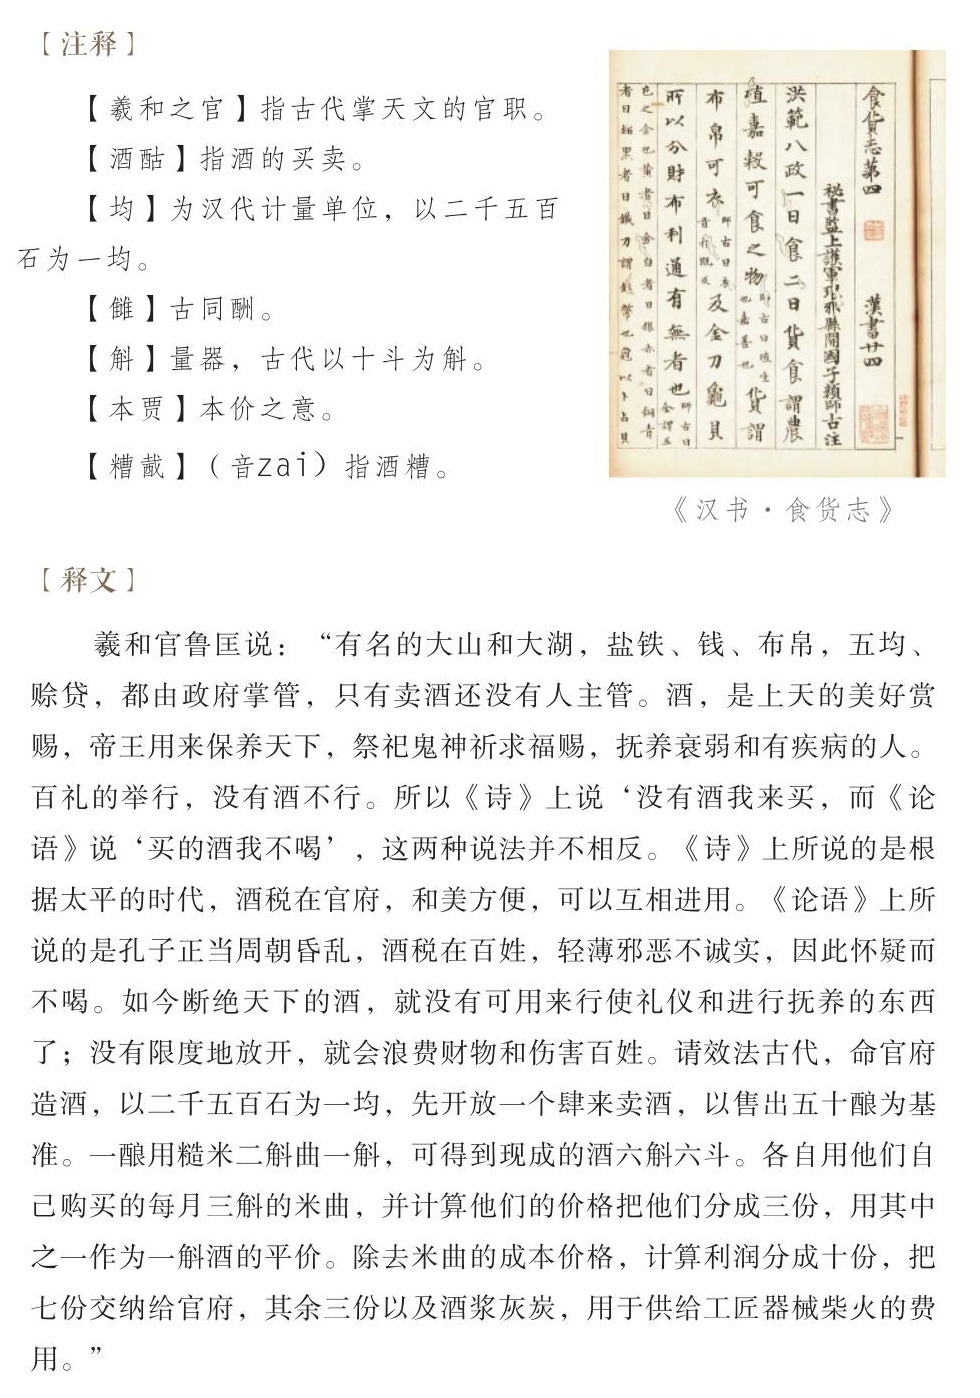 【注释】
【羲和之官】指古代掌天文的官职。
【酒酤】指酒的买卖。
【均】为汉代计量单位，以二千五百
石为一均。
【雠】古同酬。
【斛】量器，古代以十斗为斛。
【本贾】本价之意。
【糟酨】（音zai）指酒糟。
食貨志第四 漢書廿四
祕書監上護軍琅邪縣開國子顏師古注
洪範八政一曰食二曰貨食謂農
殖嘉穀可食之物 師古曰殖生也嘉善也 貨謂
布帛可衣 師古曰衣音於既反 及金刀龜貝
所以分財布利通有無者也 師古曰金謂五
色之金也黃者曰金白者曰銀赤者曰銅青
者曰鉛黑者曰鐵刀謂錢幣也龜以卜占貝
《汉书·食货志》
【释文】
羲和官鲁匡说：“有名的大山和大湖，盐铁、钱、布帛，五均、
赊贷，都由政府掌管，只有卖酒还没有人主管。酒，是上天的美好赏
赐，帝王用来保养天下，祭祀鬼神祈求福赐，抚养衰弱和有疾病的人。
百礼的举行，没有酒不行。所以《诗》上说‘没有酒我来买，而《论
语》说‘买的酒我不喝’，这两种说法并不相反。《诗》上所说的是根
据太平的时代，酒税在官府，和美方便，可以互相进用。《论语》上所
说的是孔子正当周朝昏乱，酒税在百姓，轻薄邪恶不诚实，因此怀疑而
不喝。如今断绝天下的酒，就没有可用来行使礼仪和进行抚养的东西
了；没有限度地放开，就会浪费财物和伤害百姓。请效法古代，命官府
造酒，以二千五百石为一均，先开放一个肆来卖酒，以售出五十酿为基
准。一酿用糙米二斛曲一斛，可得到现成的酒六斛六斗。各自用他们自
己购买的每月三斛的米曲，并计算他们的价格把他们分成三份，用其中
之一作为一斛酒的平价。除去米曲的成本价格，计算利润分成十份，把
七份交纳给官府，其余三份以及酒浆灰炭，用于供给工匠器械柴火的费
用。”